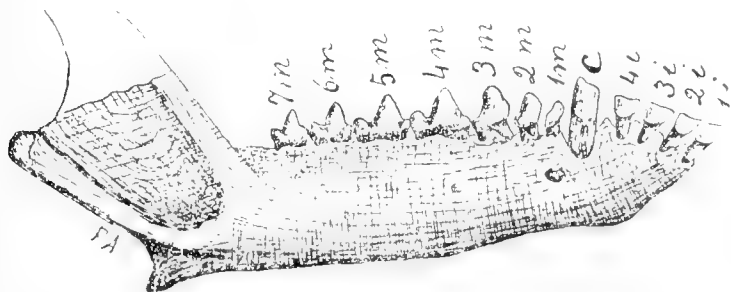 7m 6m 5m 4m 3m 2m 1m C 4i 3i 2i 1i
FA